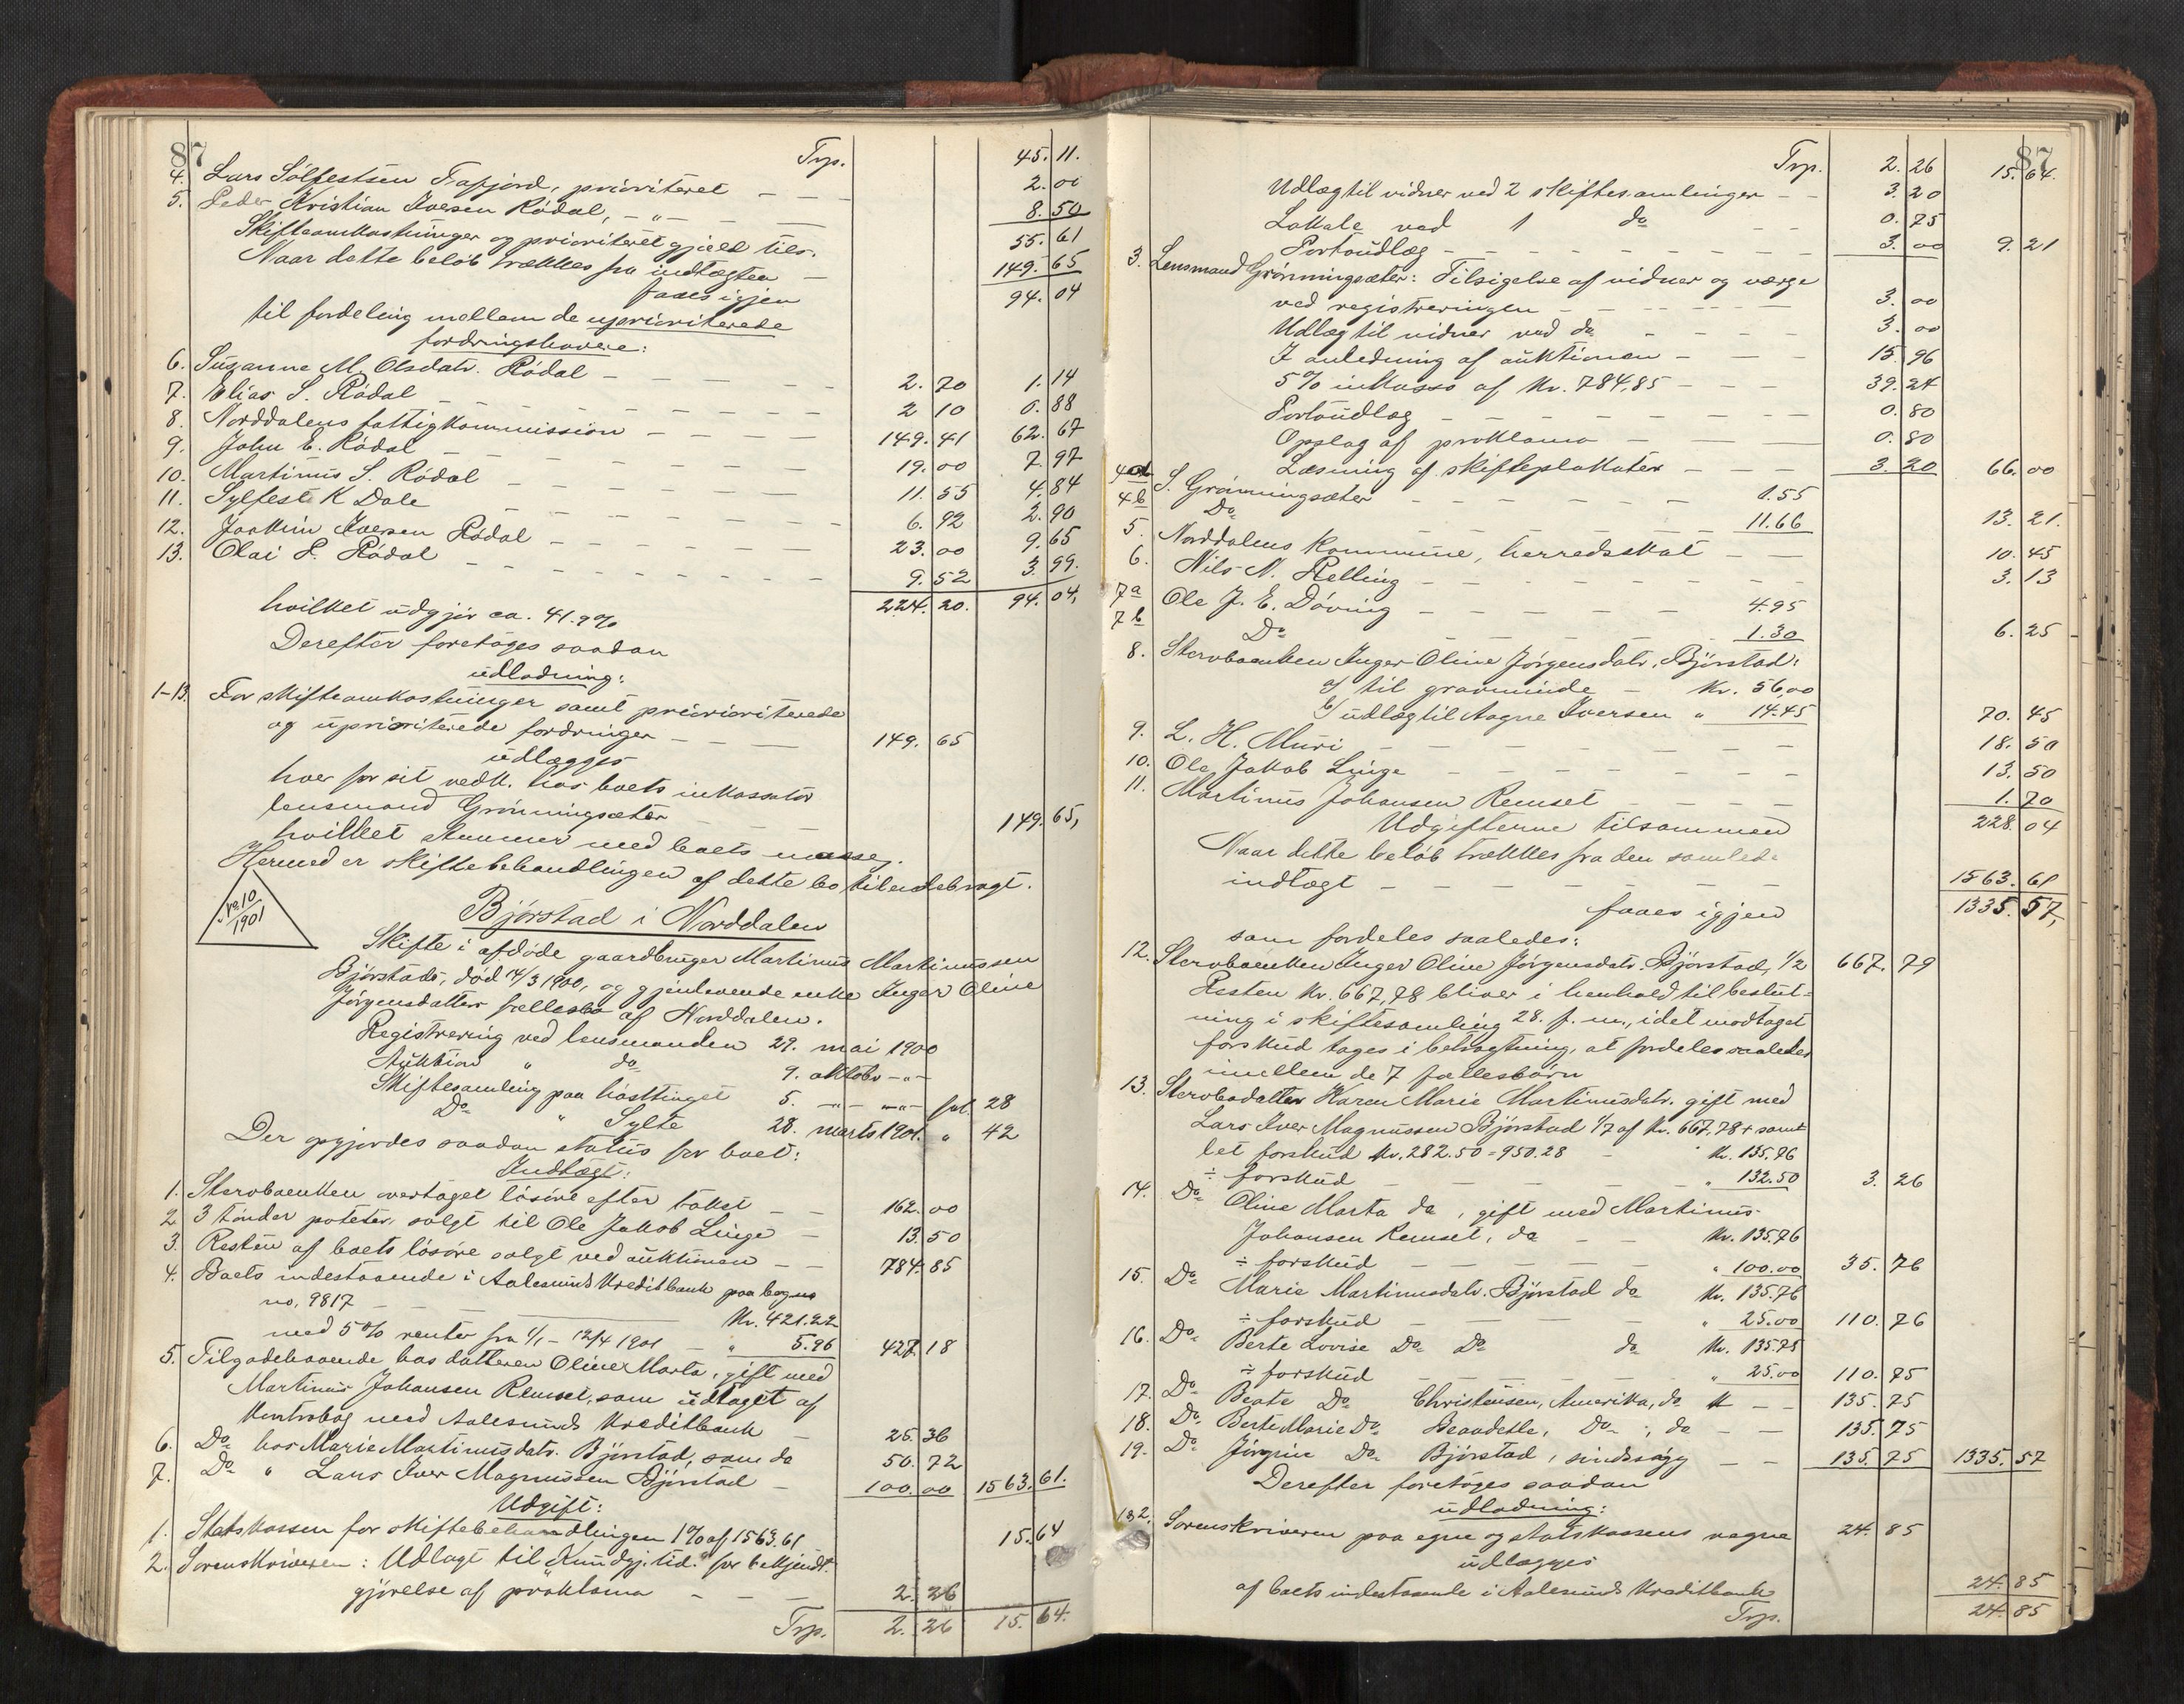 87
Trp. 45. 11.
4. Lars Sölfestsen Tafjord, prioriteret — 2. 00
5. Peder Kristian Iversen Rödal, — „ — 8. 50
Skifteomkostninger og prioriteret gjæld tils. 55. 61
Naar dette beløb trækkes fra indtægten — 149. 65
faaes igjen 94. 04
til fordeling mellem de uprioriterede
fordringshavere:
6. Susanne M. Olsdatr. Rödal — 2. 70 1. 14
7. Elias S. Rödal — 2 10 0. 88
8. Norddalens fattigkommission — 149. 41 62. 67
9. John E. Rödal — 19. 00 7. 97
10. Martinus S. Rödal — 11. 55 4. 84
11. Sylfest K Dale — 6. 92 2. 90
12. Joakim Iversen Rödal — 23. 00 9. 65
13. Olai P. Rödal — 9. 52 3. 99.
224. 20. 94. 04,
hvilket udgjør ca. 41.9 %
Derefter foretoges saadan
udlodning:
1-13. For skifteomkostninger samt prioriterede
og uprioriterede fordringer — 149. 65
udlægges
hver for sit vedk. hos boets inkassator
lensmand Grönningsæter — 149. 65,
hvilket stemmer med boets masse.
Hermed er skiftebehandlingen af dette bo tilendebragt.
no. 10
1901
Bjørstad i Norddalen
Skifte i afdøde gaardbruger Martinus Martinussen
Bjørstads, død 14/3 1900, og gjenlevende enke Inger Oline
Jørgensdatters fællesbo af Norddalen.
Registrering ved lensmanden 29. mai 1900
Auktion „ do 9. oktober — „ —
Skiftesamling paa høsttinget 5. — „ — — „ — fol. 28
Do „ Sylte 28. marts 1901. „ 42
Der opgjordes saadan status for boet:
Indtægt:
1. Stervboenken overtaget løsøre efter takst — 162. 00
2 3 tønder poteter, solgt til Ole Jakob Linge — 13. 50
3. Resten af boets løsøre solgt ved auktionen — 784. 85
4. Boets indestaaende i Aalesunds Kreditbank paa bog no
no. 9817 — Kr. 421.22
med 5 % renter fra 1/1 – 12/4 1901 — „ 5.96 427. 18
5. Tilgodehavende hos datteren Oline Marta, gift med
Martinus Johansen Remset, som udtaget af
Kontrabog med Aalesunds Kreditbank — 25. 36
6. Do hos Marie Martinusdatr. Bjørstad, som do 50. 72
7. Do „ Lars Iver Magnussen Bjørstad — 100. 00 1563. 61.
Udgift:
1. Statskassen for skiftebehandlingen 1 % af 1563.61 15. 64
2. Sorenskriveren: Udlagt til „Kundgj. tid.“ for bekjendt-
gjørelse af proklama — 2. 26
Trp. 2. 26 15. 64.
87
Trp. 2. 26 15. 64.
Udlæg til vidner ved 2 skiftesamlinger — 3. 20
Lokale ved 1 do — 0. 75
Portoudlæg — 3. 00 9. 21
3. Lensmand Grönningsæter: Tilsigelse af vidner og værge
ved registreringen — 3. 00
Udlæg til vidner ved do — 3. 00
I anledning af auktionen — 15. 96
5 % inkasso af Kr. 784,85 — 39. 24
Portoudlæg — 0. 80
Opslag af proklama — 0. 80
Læsning af skifteplakater — 3. 20 66. 00
4 a S. Grönningsæter — 1.55
4 b Do — 11.66 13. 21.
5. Norddalens kommune, herredsskat — 10. 45
6. Nils N. Relling — 3. 13
7 a Ole J. E. Döving — 4.95
7 b Do 1.30 6. 25
8. Stervboenken Inger Oline Jørgensdatr. Bjørstad:
a/ til gravminde — Kr. 56,00
b/ udlæg til Aagne Iversen „ 14.45 70. 45
9. L. H. Muri — 18. 50
10. Ole Jakob Linge — 13. 50
11. Martinus Johansen Remset — 1. 70
Udgifterne tilsammen 228. 04
Naar dette beløb trækkes fra den samlede
indtægt — 1563. 61
faaes igjen 1335. 57,
som fordeles saaledes:
12. Stervboenken Inger Oline Jørgensdatr. Bjørstad, 1/2 667. 79
Resten Kr. 667,78 bliver i henhold til beslut-
ning i skiftesamling 28. f. m., idet modtaget
forskud tages i betragtning, at fordeles saaledes
imellem de 7 fællesbørn
13. Stervbodatter Karen Marie Martinusdatr. gift med
Lars Iver Magnussen Bjørstad 1/7 af Kr. 667.78 + samt
let forskud Kr. 282.50 = 950.28 — Kr. 135.76
÷ forskud — „ 132.50 3. 26
14. Do Oline Marta do, gift med Martinus
Johansen Remset, do — Kr. 135.76
÷ forskud — „ 100.00 35. 76
15. Do Marie Martinusdatr. Bjørstad do Kr. 135.76
÷ forskud — „ 25.00 110. 76
16. Do Berte Lovise Do Do do Kr. 135.75
÷ forskud — „ 25.00 110. 75
17. Do Beate Do Christensen, Amerika, do — 135. 75
18. Do Berte Marie Do Do, do — 135. 75
19. Do Jørgine Do Bjørstad, sindssyg — 135. 75 1335. 57
Derefter foretoges saadan
udlodning:
1 & 2. Sorenskriveren paa egne og statskassens vegne 24. 85
udlægges
af boets indestaaende i Aalesunds Kreditbank 24. 85
Trp. 24. 85